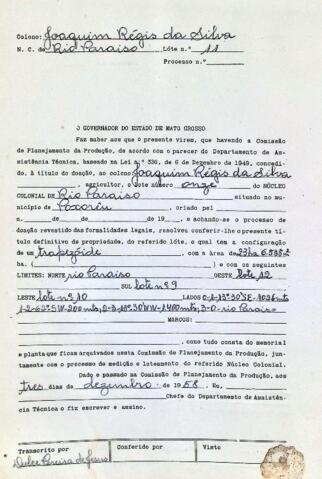 Colono: Joaquim Régis da Silva
N. C. de Rio Paraiso Lóte n.º 11
Processo n.º
O GOVERNADOR DO ESTADO DE MATO GROSSO
Faz saber aos que o presente virem, que havendo a Comissão
de Planejamento da Produção, de acordo com o parecer do Departamento de As-
sistência Técnica, baseado na Lei n.º 336, de 6 de Dezembro de 1949, concedi-
do, à título de doação, ao colono Joaquim Régis da Silva
, agricultor, o lote número onze do NÚCLEO
COLONIAL DE Rio Paraiso situado no mu-
nicípio de Poxoréu, criado pel
n. de de de 19 e achando-se o processo de
doação revestido das formalidades legais, resolveu conferir-lhe o presente
título definitivo de propriedade, do referido lóte, o qual tem a configuração
de um trapezóide com a área de 23 ha
ha. ( ) e com os seguintes
LIMITES: NORTE rio Paraiso OESTE lote 12
SUL lote nº 9
LESTE lote nº 10 LADOS
MARCOS:
como tudo consta do memorial
e planta que ficam arquivados nesta Comissão de Planejamento da Produção, jun-
tamente com o processo de medição e loteamento do referido Núcleo Colonial.
Dado e passado na Comissão de Planejamento da Produção, aos
três dias de dezembro de 1958. Eu,
Chefe do Departamento de Assistên-
cia Técnica o fiz escrever e assino.
Transcrito por Conferido por Visto
Dulce Pereira de